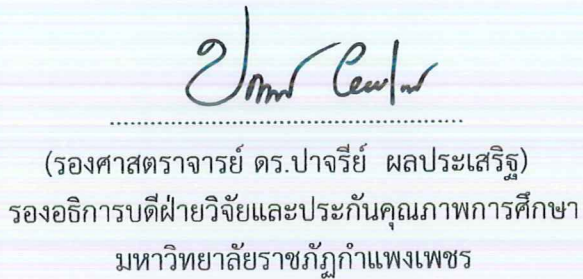 (รองศาสตราจารย์ ดร.ปาจรีย์ ผลประเสริฐ)
รองอธิการบดีฝ่ายวิจัยและประกันคุณภาพการศึกษา
มหาวิทยาลัยราชภัฏกำแพงเพชร